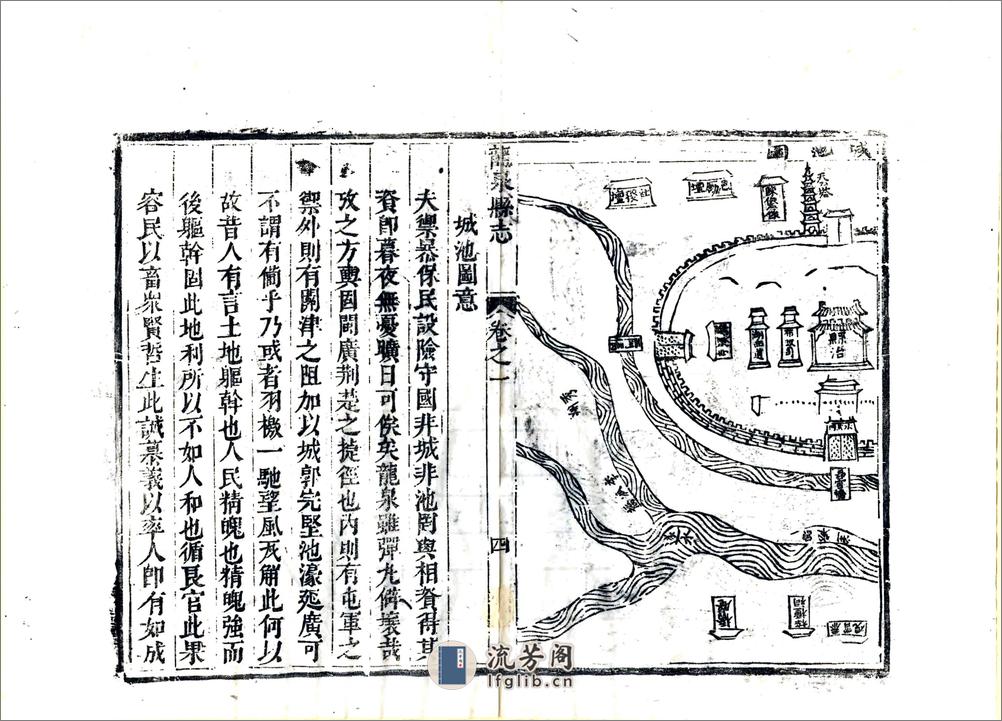 城池圖
天塔
縣治
龍泉縣志
卷之一
四
城池圖意
夫禦暴保民設險守國非城非池罔與相資得其
資即暮夜無憂曠日可俟矣龍泉雖彈丸僻壤哉
攷之方輿固閩廣荆楚之捷徑也內則有屯軍之
禦外則有關津之阻加以城郭完堅池濠延廣可
不謂有備乎乃或者羽檄一馳望風瓦解此何以
故昔人有言土地軀幹也人民精魄也精魄強而
後軀幹固此地利所以不如人和也循良官此果
容民以畜衆賢哲生此誠慕義以率人即有如成
流芳阁
lfglib.cn